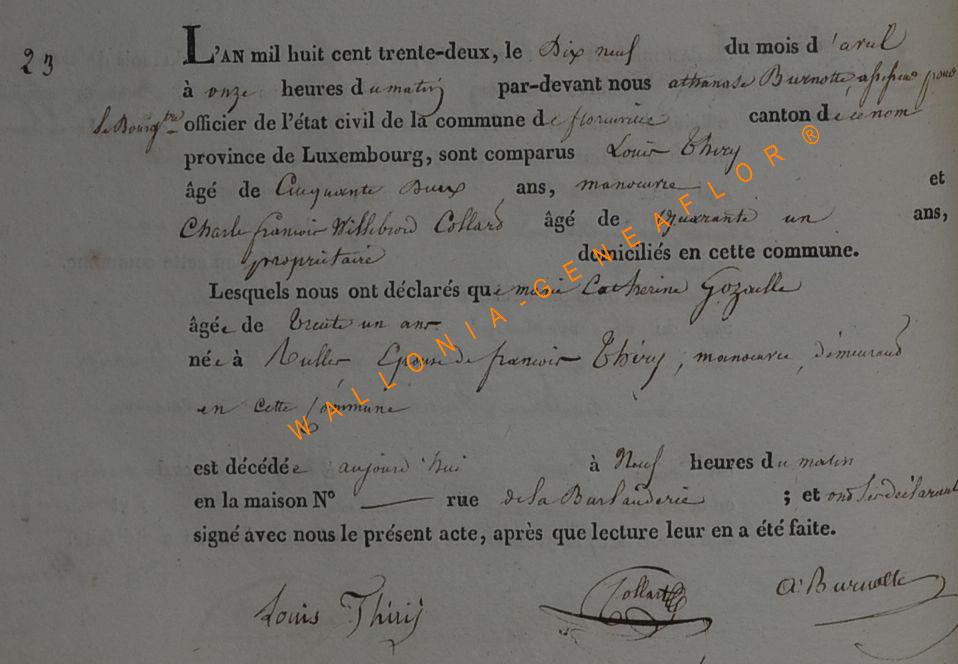 23
L'AN mil huit cent trente-deux, le Dix neuf du mois d'avril
à onze heures du matin par-devant nous athanase Burnotte assesseur pour
le Bourg^tre officier de l'état civil de la commune de florenville canton de ce nom
province de Luxembourg, sont comparus Louis Thiry
âgé de Cinquante Deux ans, manoeuvre et
Charle francois Willebrord Collard âgé de quarante un ans,
propriétaire domiciliés en cette commune.
Lesquels nous ont déclarés que marie Catherine Gozelle
âgée de trente un ans
née à Rulles Epouse de francois Thiry, manoeuvre, demeurand
en cette Commune
est décédée aujourd'hui à Neuf heures du matin
en la maison N° — rue de la ; et ont les déclarant
signé avec nous le présent acte, après que lecture leur en a été faite.
Louis Thiry Collart A Burnotte
WALLONIA-GENEAFLOR ®